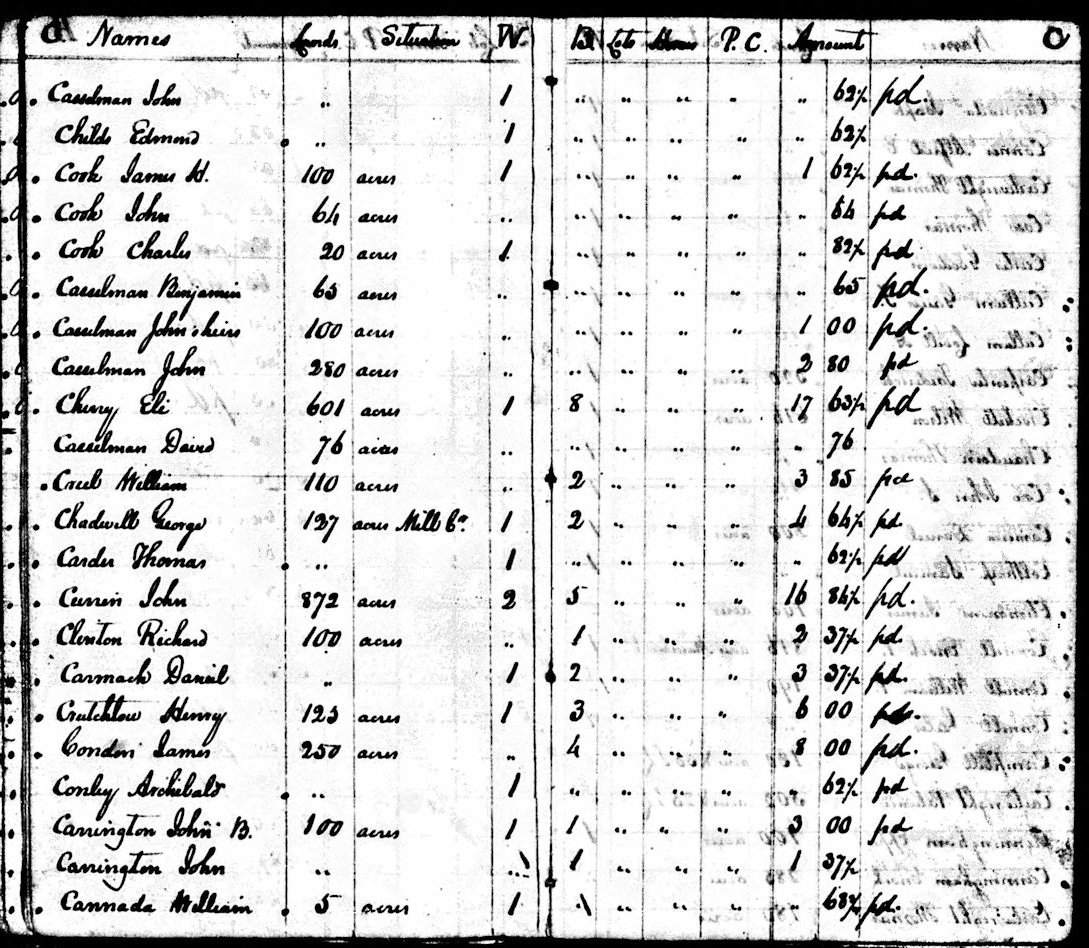 C. Names Lands Situation W. B. Lots Horses P. C. Amount C
Casselman John " 1 " " " " " 62½ pd.
Childs Edmond " 1 " " " " " 62½
Cook James H. 100 acres 1 " " " " 1 62½ pd.
Cook John 64 acres " " " " " " 64 pd
Cook Charles 20 acres 1 " " " " " 82½ pd
Casselman Benjamin 65 acres " " " " " " 65 pd.
Casselman John's heirs 100 acres " " " " " 1 00 pd.
Casselman John 280 acres " " " " " 2 80 pd
Cherry Eli 601 acres 1 8 " " " 17 63½ pd
Casselman David 76 acres " " " " " " 76
Creel William 110 acres " 2 " " " 3 85 pd
Chadwell George 127 acres Mill Ck. 1 2 " " " 4 64½ pd
Carder Thomas " 1 " " " " " 62½ pd
Currin John 872 acres 2 5 " " " 16 84½ pd.
Clenton Richard 100 acres " 1 " " " 2 37½ pd
Carmack Daniel " 1 2 " " " 3 37½ pd.
Crutchlow Henry 125 acres 1 3 " " " 6 00 pd.
Conden James 250 acres " 4 " " " 8 00 pd.
Conley Archibald " 1 " " " " " 62½ pd
Carrington John B. 100 acres 1 1 " " " 3 00 pd
Carrington John " " 1 " " " 1 37½
Cannada William 5 acres 1 " " " " " 68½ pd.